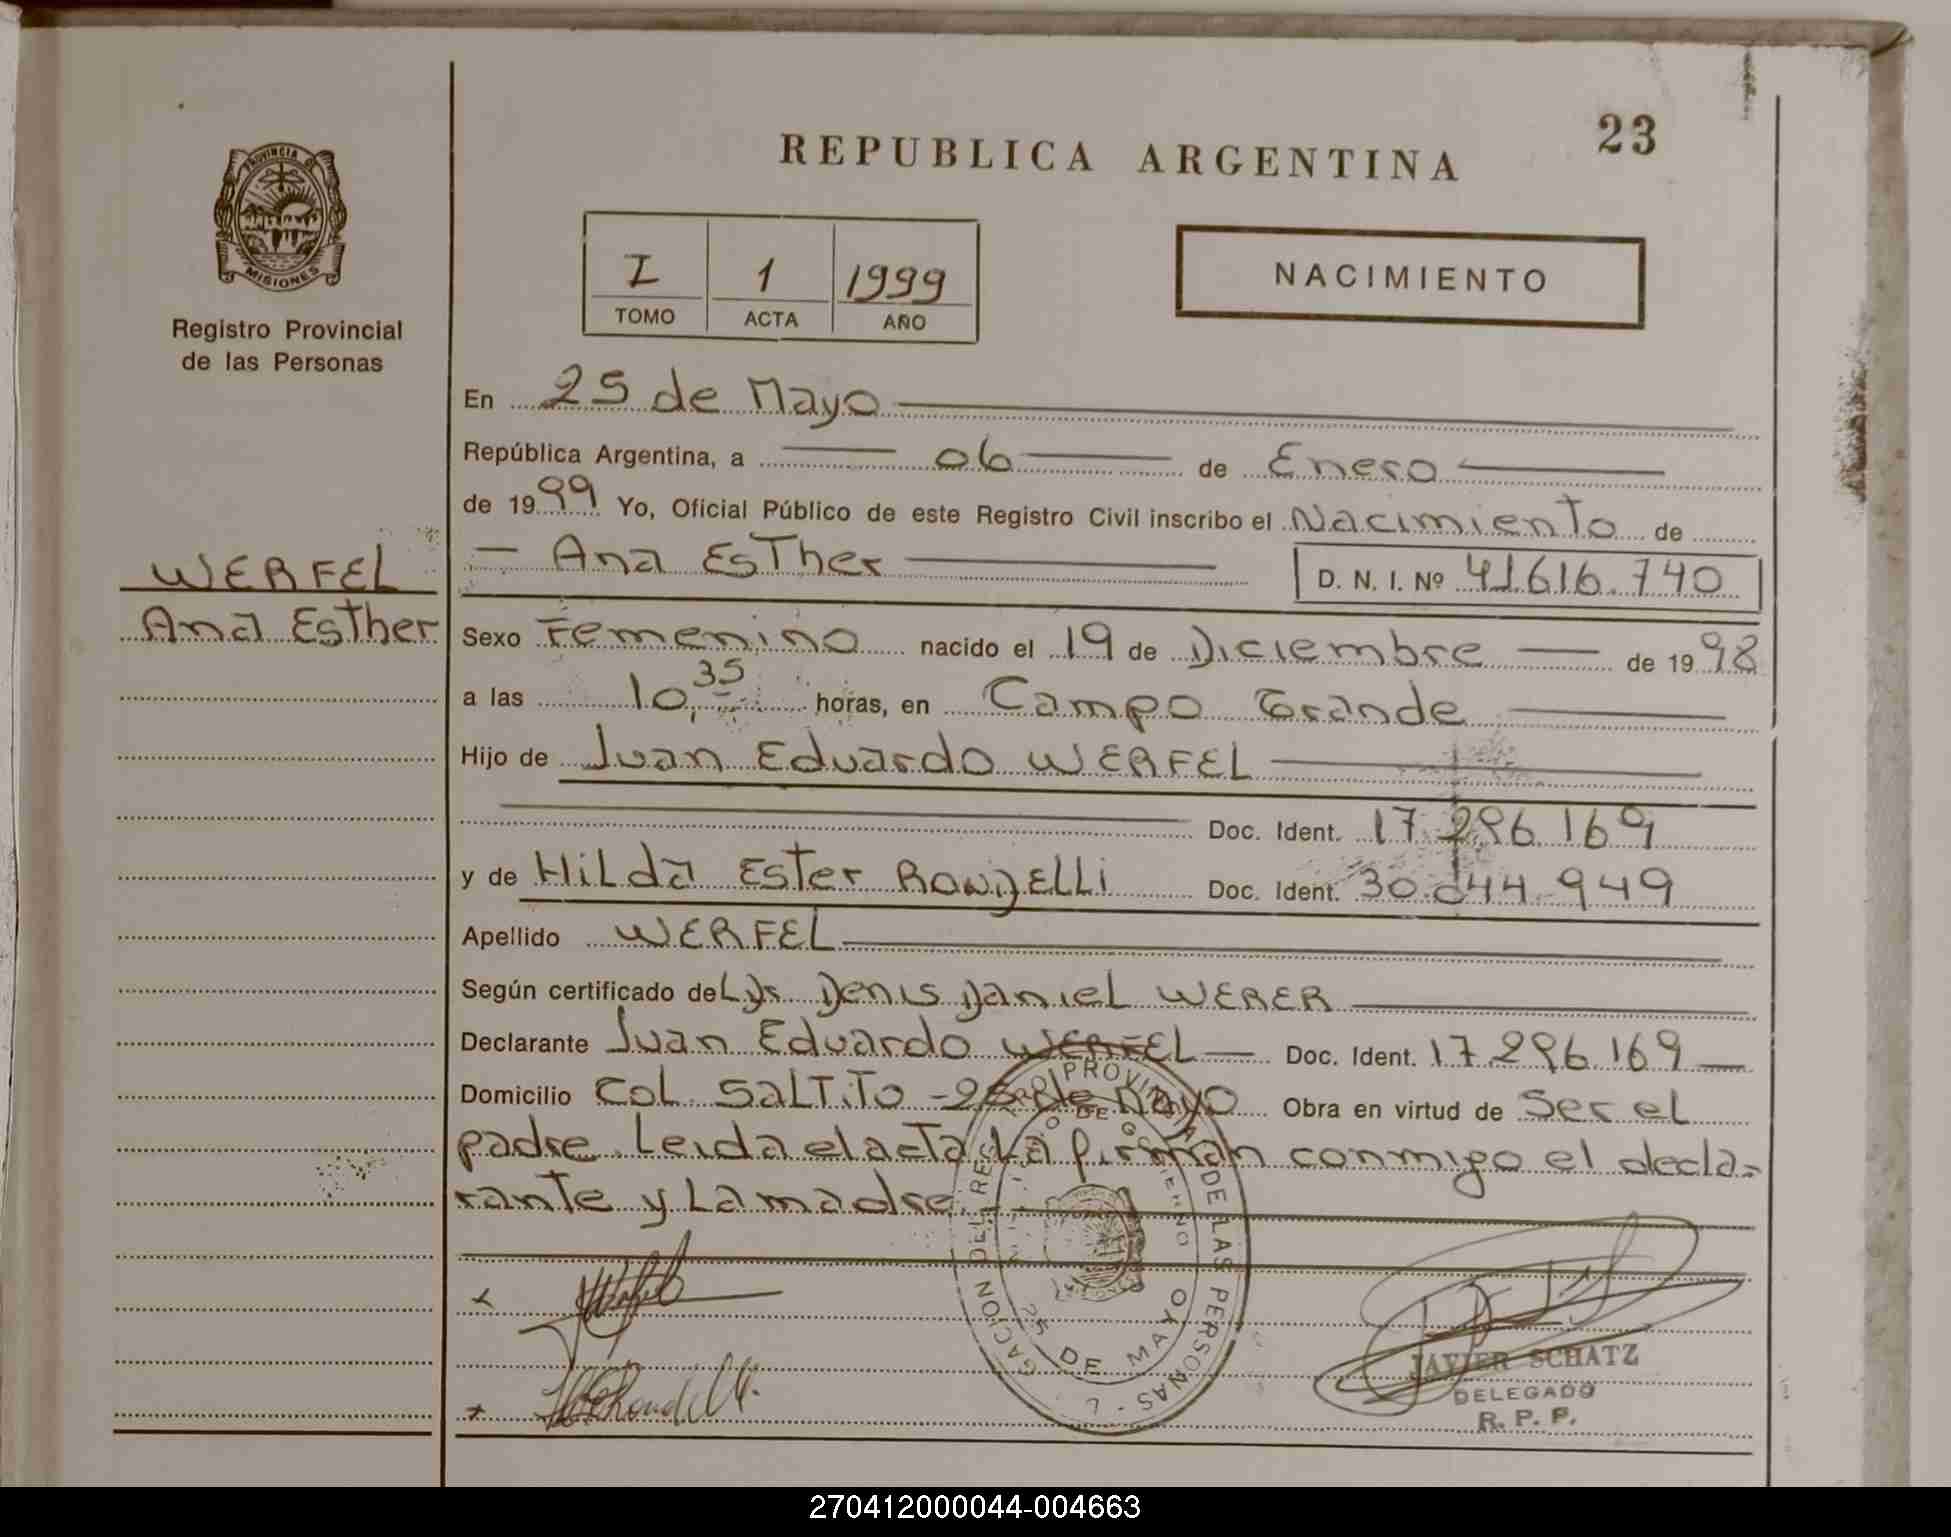 REPUBLICA ARGENTINA
23
PROVINCIA DE
MISIONES
Registro Provincial
de las Personas
I 1 1999
TOMO ACTA AÑO
NACIMIENTO
En 25 de Mayo
República Argentina, a 06 de Enero
de 1999 Yo, Oficial Público de este Registro Civil inscribo el Nacimiento de
Ana Esther D. N. I. Nº 41.616.740
WERFEL
Ana Esther
Sexo Femenino nacido el 19 de Diciembre de 1998
a las 10,35 horas, en Campo Grande
Hijo de Juan Eduardo WERFEL
Doc. Ident. 17.296.169
y de Hilda Ester Doc. Ident. 30.044.949
Apellido WERFEL
Según certificado de Denis Daniel WEBER
Declarante Juan Eduardo WERFEL Doc. Ident. 17.296.169
Domicilio Col. Saltito - 25 de Mayo Obra en virtud de Ser el
padre. Leida el acta La firman conmigo el decla-
rante y La madre.
25 DE MAYO
JAVIER SCHATZ
DELEGADO
R. P. P.
270412000044-004663